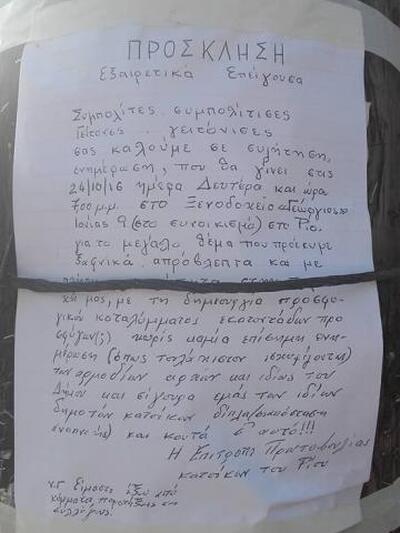 ΠΡΟΣΚΛΗΣΗ
Εξαιρετικά Επείγουσα
Συμπολίτες συμπολίτισες
Γείτονες . γειτόνισες
σας καλούμε σε συζήτηση,
ενημέρωση, που θα γίνει στις
24/10/16 ημέρα Δευτέρα και ώρα
7:00 μ.μ. στο Ξενοδοχείο «Γεώργιος»
Ιωνίας 9 (στο συνοικισμό) στο Ρίο.
για το μεγάλο, θέμα που προέκυψε
ξαφνικά απρόβλεπτα και με
και μας, με τη δημιουργία προσφυ-
γικού καταλύμματος εκατοντάδων προ
σφύγων(;) χωρίς καμία επίσημη ενη-
μέρωση (όπως τουλάχιστον ισχυρίζονται)
των αρμοδίων αρχών και ιδίως του
Δήμου και σίγουρα εμάς των ιδίων
δημοτών κατοίκων δίπλα
και κοντά σ' αυτό!!!
Η Επιτροπή Πρωτοβουλίας
κατοίκων του Ρίου
υ.γ Είμαστε έξω από
κόμματα, παρατάξεις και
συλλόγους.